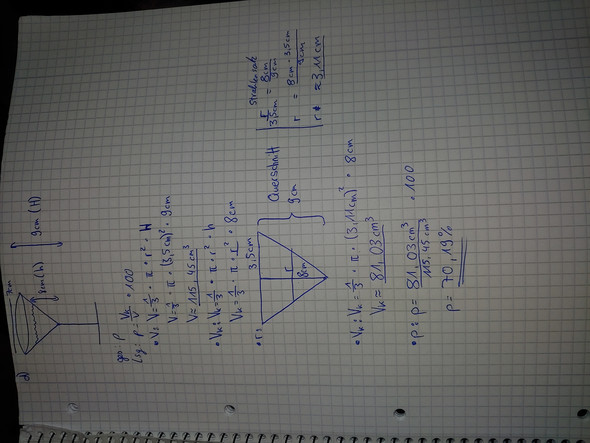 d)
7cm
8cm(h)
9cm(H)
ges: p
Lsg: p = Vk/V · 100
• V: V = 1/3 · π · r² · H
V = 1/3 · π · (3,5cm)² · 9cm
V ≈ 115,45cm³
• Vk: Vk = 1/3 · π · r² · h
Vk = 1/3 · π · r² · 8cm
• r:
3,5cm
r
8cm
Querschnitt
9cm
Strahlensatz
r/3,5cm = 8cm/9cm
r = 8cm · 3,5cm/9cm
r ≈ 3,11cm
• Vk: Vk = 1/3 · π · (3,11cm)² · 8cm
Vk ≈ 81,03cm³
• p: p = 81,03cm³/115,45cm³ · 100
p = 70,19%